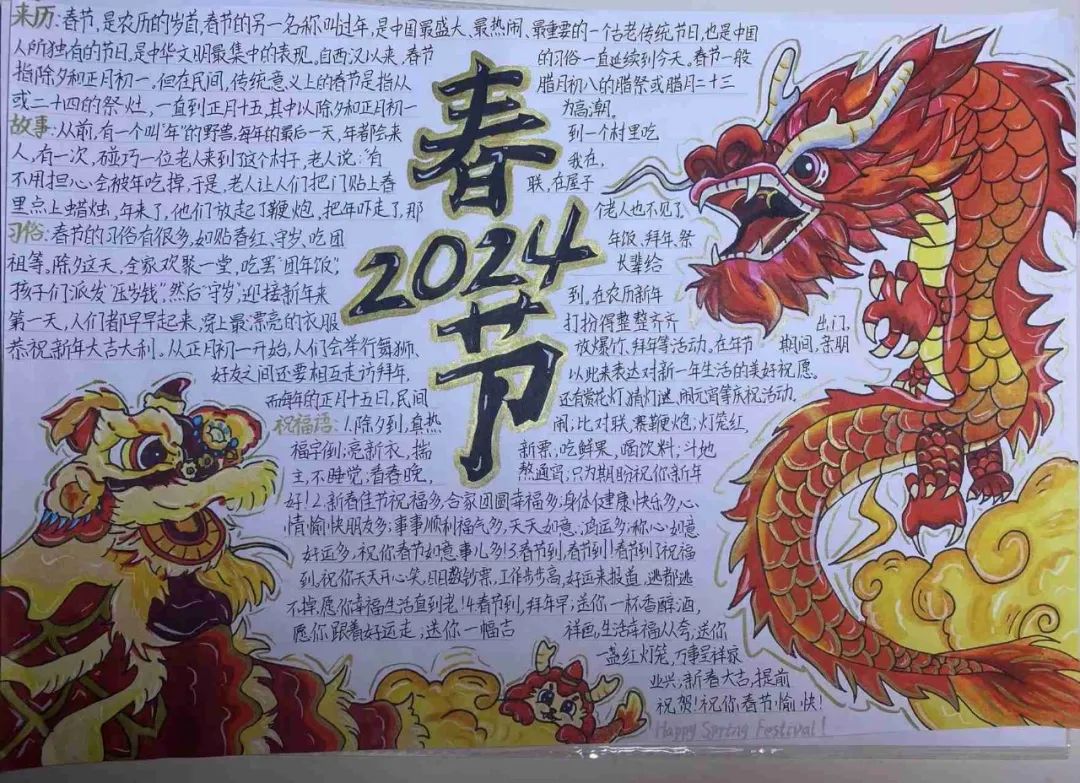 来历:春节,是农历的岁首,春节的另一名称叫过年,是中国最盛大、最热闹、最重要的一个古老传统节日,也是中国
人所独有的节日,是中华文明最集中的表现。自西汉以来,春节的习俗一直延续到今天。春节一般
指除夕和正月初一。但在民间,传统意义上的春节是指从腊月初八的腊祭或腊月二十三
或二十四的祭灶,一直到正月十五,其中以除夕和正月初一为高潮。
故事:从前,有一个叫“年”的野兽,每年的最后一天,年都会来到一个村里吃
人,有一次,碰巧一位老人来到了这个村子,老人说:“有我在,
不用担心会被年吃掉,于是,老人让人们把门贴上春联,在屋子
里点上蜡烛,年来了,他们放起了鞭炮,把年吓走了,那个老人也不见了。
习俗:春节的习俗有很多,如贴春红、守岁、吃团年饭、拜年、祭
祖等,除夕这天,全家欢聚一堂,吃罢“团年饭”,长辈给
孩子们“派发“压岁钱”,然后“守岁”,迎接新年来到,在农历新年
第一天,人们都早早起来,穿上最漂亮的衣服打扮得整整齐齐出门,
恭祝新年大吉大利。从正月初一开始,人们会举行舞狮、放爆竹、拜年等活动。在年节期间,亲朋
好友之间还要相互走访拜年,以此来表达对新一年生活的美好祝愿。
而每年的正月十五日,民间还有赏花灯,猜灯谜,闹元宵等庆祝活动。
祝福语:1.除夕到,真热闹;比对联,赛鞭炮;灯笼红,
福字倒;亮新衣,揣新票,吃鲜果,喝饮料;斗地
主,不睡觉;看春晚,熬通宵;只为期盼祝你新年
好!2.新春佳节祝福多,合家团圆幸福多;身体健康快乐多,心
情愉快朋友多;事事顺利福气多,天天如意,鸿正多;称心如意
好正多,祝你春节如意事儿多!3春节到!春节到!春节到了祝福
到,祝你天天开心笑,日日数钞票,工作步步高,好运来报道,逃都逃
不掉,愿你幸福生活直到老!4春节到,拜年早;送你一杯香醇酒,
愿你跟着好运走;送你一幅吉祥画,生活幸福人人夸;送你
一盏红灯笼,万事呈祥家
业兴;新春大吉,提前
祝贺!祝你春节愉快!
Happy Spring Festival!
春
2024
节